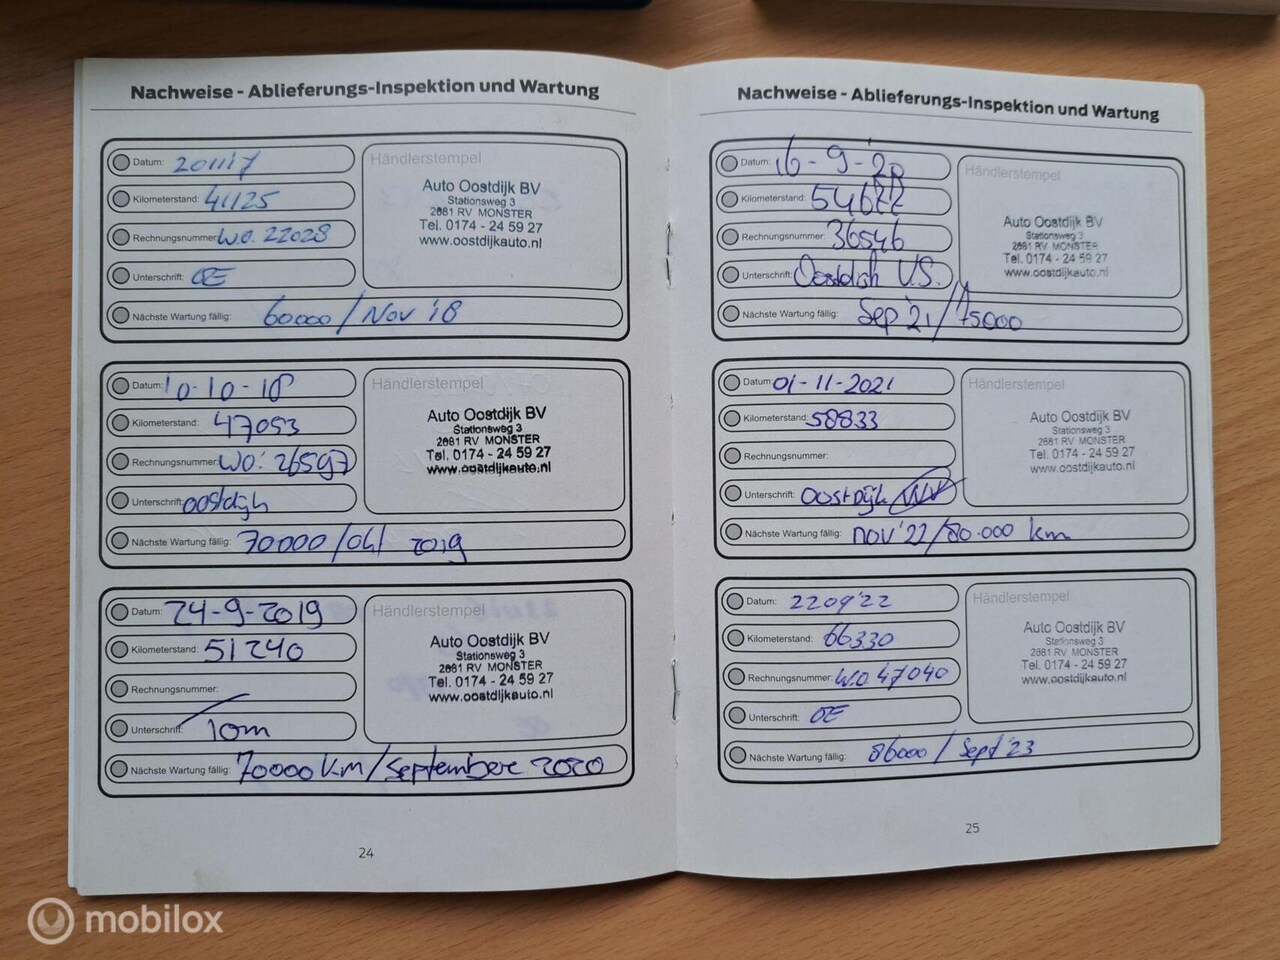 Nachweise - Ablieferungs-Inspektion und Wartung
Datum: 201117
Kilometerstand: 41125
Rechnungsnummer: W.O. 22028
Unterschrift: OE
Händlerstempel
Auto Oostdijk BV
Stationsweg 3
2681 RV MONSTER
Tel. 0174 - 24 59 27
www.oostdijkauto.nl
Nächste Wartung fällig: 60000 / Nov '18
Datum: 10-10-18
Kilometerstand: 47093
Rechnungsnummer: WO: 26597
Unterschrift: oostdijk
Händlerstempel
Auto Oostdijk BV
Stationsweg 3
2681 RV MONSTER
Tel. 0174 - 24 59 27
www.oostdijkauto.nl
Nächste Wartung fällig: 70000 / okt 2019
Datum: 24-9-2019
Kilometerstand: 51240
Rechnungsnummer:
Unterschrift:
Händlerstempel
Auto Oostdijk BV
Stationsweg 3
2681 RV MONSTER
Tel. 0174 - 24 59 27
www.oostdijkauto.nl
Nächste Wartung fällig: 70000 km / Septembere 2020
24
Nachweise - Ablieferungs-Inspektion und Wartung
Datum: 16-9-'20
Kilometerstand:
Rechnungsnummer: 36546
Unterschrift: Oostdijk V.S.
Händlerstempel
Auto Oostdijk BV
Stationsweg 3
2681 RV MONSTER
Tel. 0174 - 24 59 27
www.oostdijkauto.nl
Nächste Wartung fällig: Sep '21 / 75000
Datum: 01-11-2021
Kilometerstand: 58833
Rechnungsnummer:
Unterschrift: Oostdijk
Händlerstempel
Auto Oostdijk BV
Stationsweg 3
2681 RV MONSTER
Tel. 0174 - 24 59 27
www.oostdijkauto.nl
Nächste Wartung fällig: nov '22 / 80.000 km
Datum: 2209'22
Kilometerstand: 66330
Rechnungsnummer: W.O 47040
Unterschrift: OE
Händlerstempel
Auto Oostdijk BV
Stationsweg 3
2681 RV MONSTER
Tel. 0174 - 24 59 27
www.oostdijkauto.nl
Nächste Wartung fällig: 86000 / Sept '23
25
mobilox